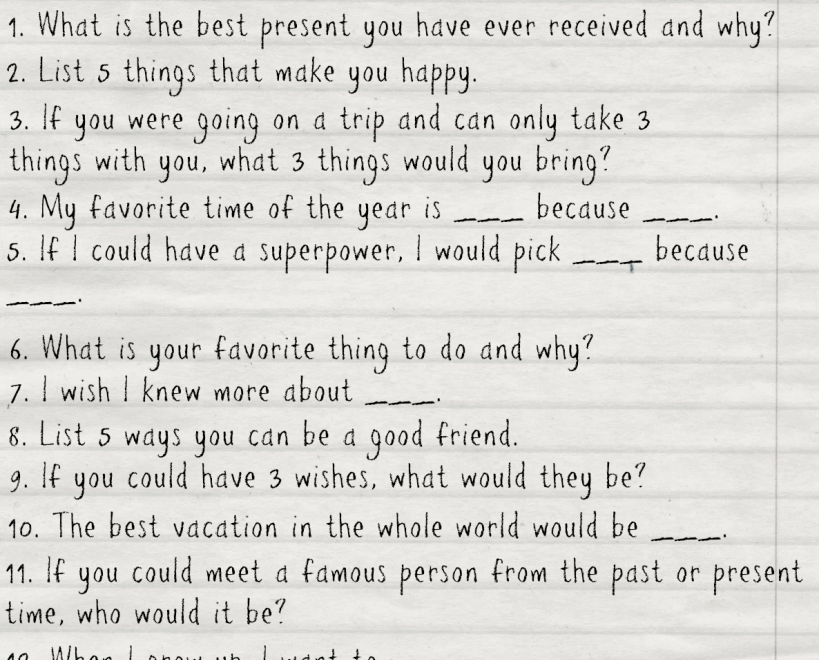 1. What is the best present you have ever received and why?
2. List 5 things that make you happy.
3. If you were going on a trip and can only take 3
things with you, what 3 things would you bring?
4. My favorite time of the year is ___ because ___.
5. If I could have a superpower, I would pick ___ because
___.
6. What is your favorite thing to do and why?
7. I wish I knew more about ___.
8. List 5 ways you can be a good friend.
9. If you could have 3 wishes, what would they be?
10. The best vacation in the whole world would be ___.
11. If you could meet a famous person from the past or present
time, who would it be?
12. When I grow up, I want to